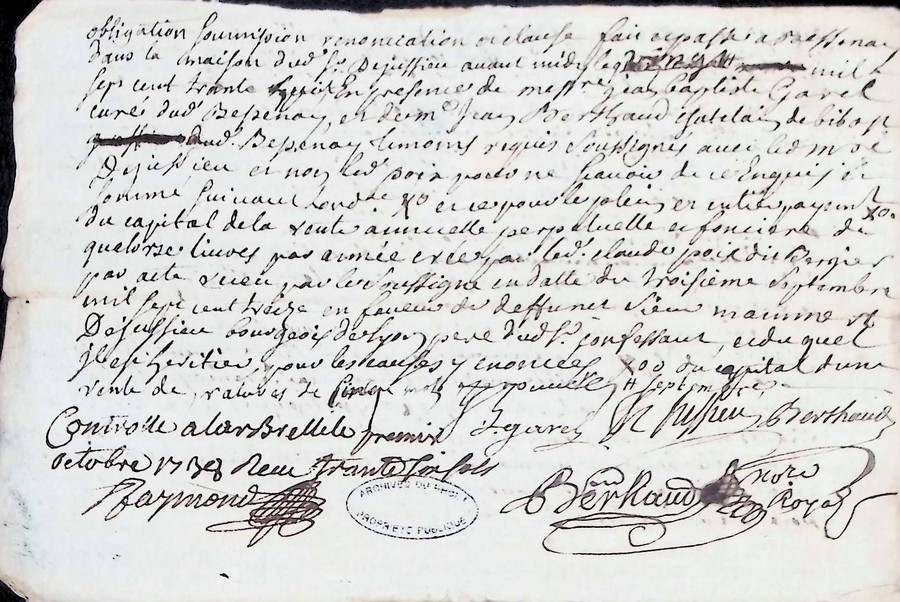 obligation soumission renonciation et clause fait et passé a Bessenay
dans la maison dud. Sr. Dejussieu avant midy le mil
sept cent trante huit En presence de messre. jean baptiste Garel
curé dud Bessenay, et de me Jean Berthaud de bibost
dud. Bessenay temoins requis soussignés avec led. Sr. De
Dejussieu et non led. poix pour ne scavoir de ce Enquis et
sommé suivant lord.ce et ce pour le plein et entier payemt
du capital de la rente annuelle perpetuelle et fonciere de
quatorze livres par année créée par led. claude poix du Verger
par acte receu par le soussigné en datte du troisieme septembre
mil sept cent treize en faveur de deffunct sieur
Dejussieu bourgeois de Lyon pere dud. Sr. confessant, et duquel
il est heritier, pour les causes y enoncées Xo. du capital d'une
rente de septembre
Controlle a larBrelle le premier Garel De Jussieu Berthaud
octobre 1738 Receu trante six sols
Raymond Berthaud nore
Royal
ARCHIVES DU
PROPRIETE PUBLIQUE